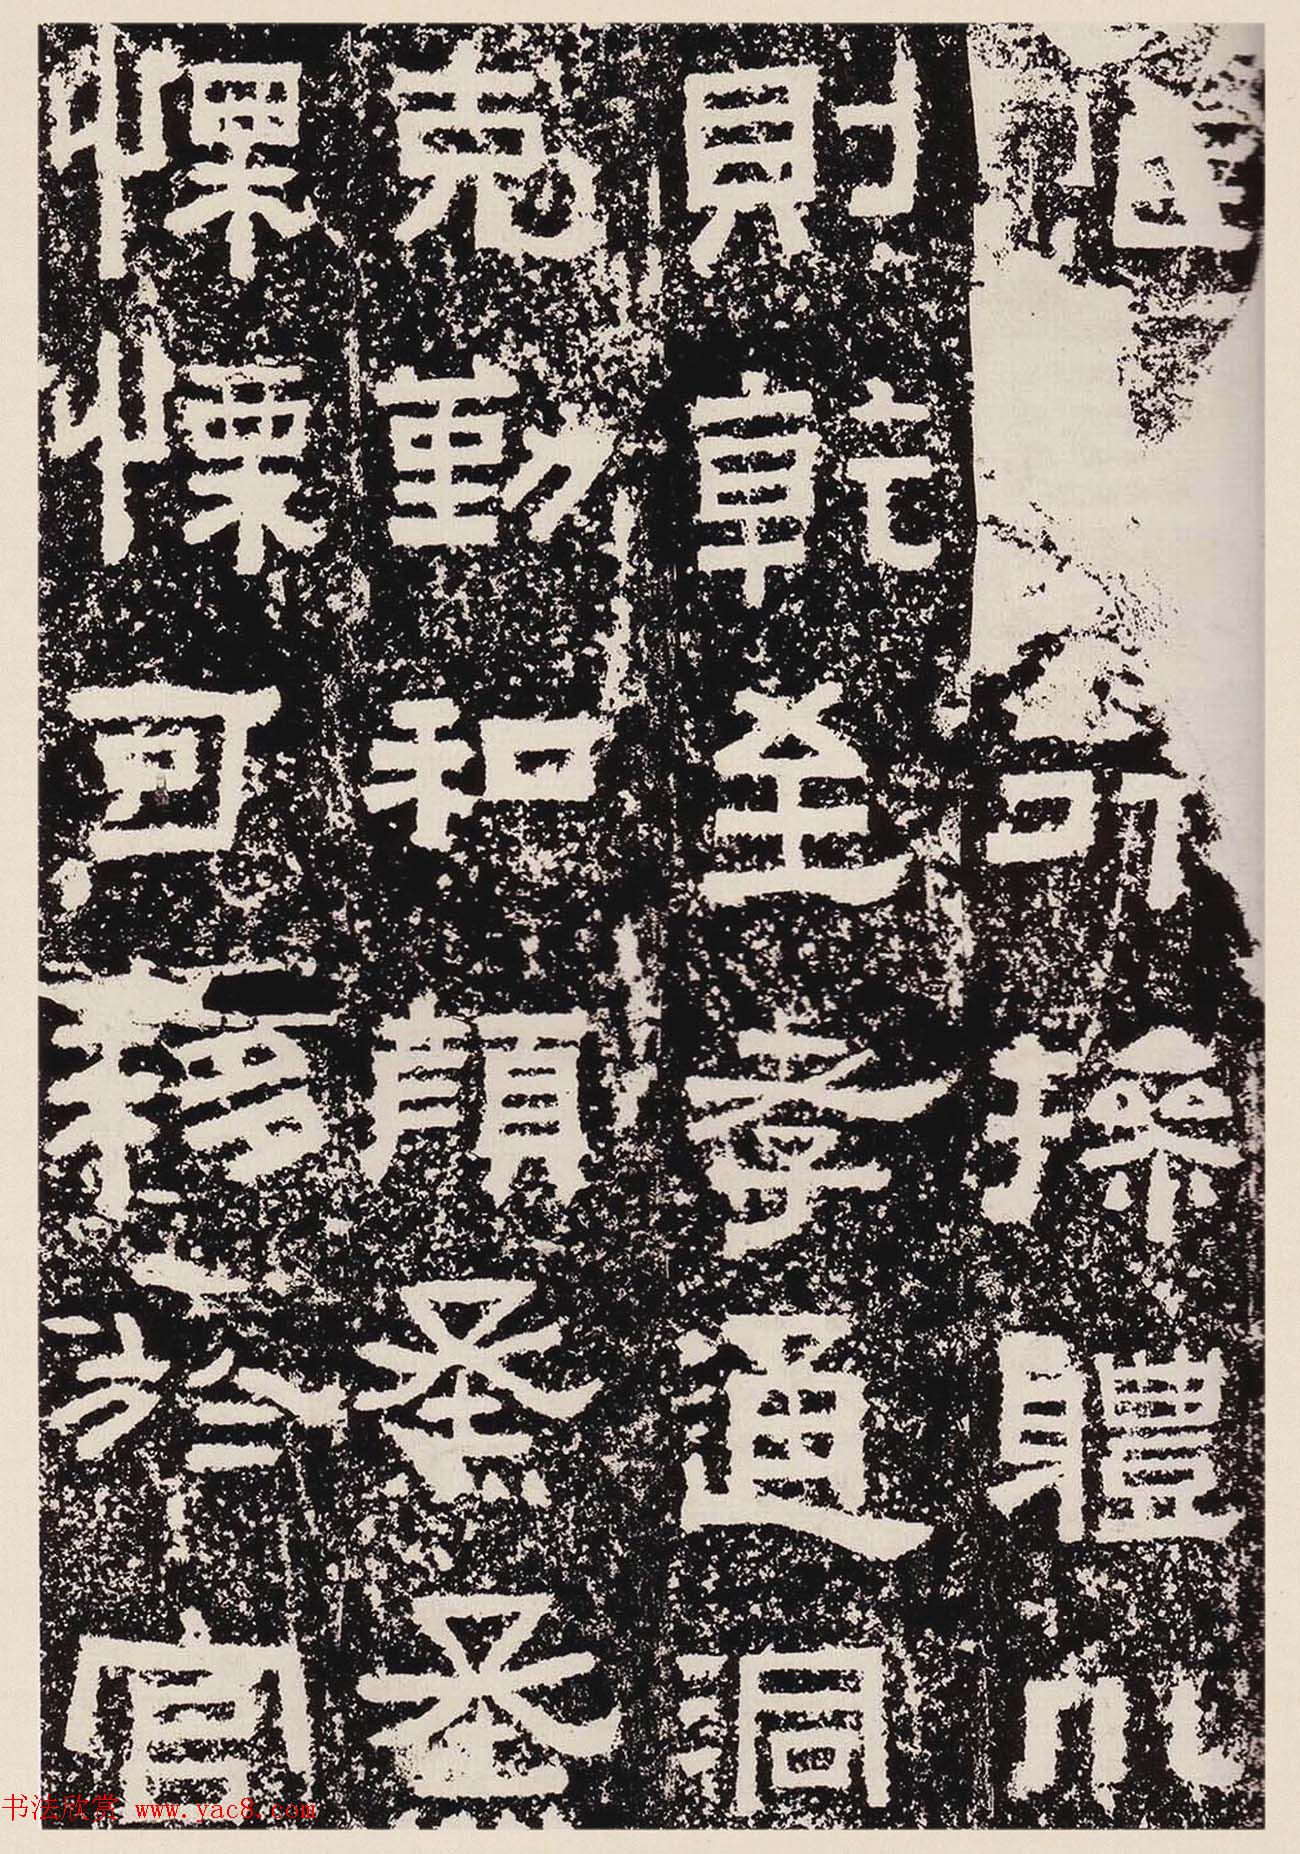 命操體
則乾至孝通洞
克動和顏烝烝
慄慄可移於官
书法欣赏 www.yac8.com